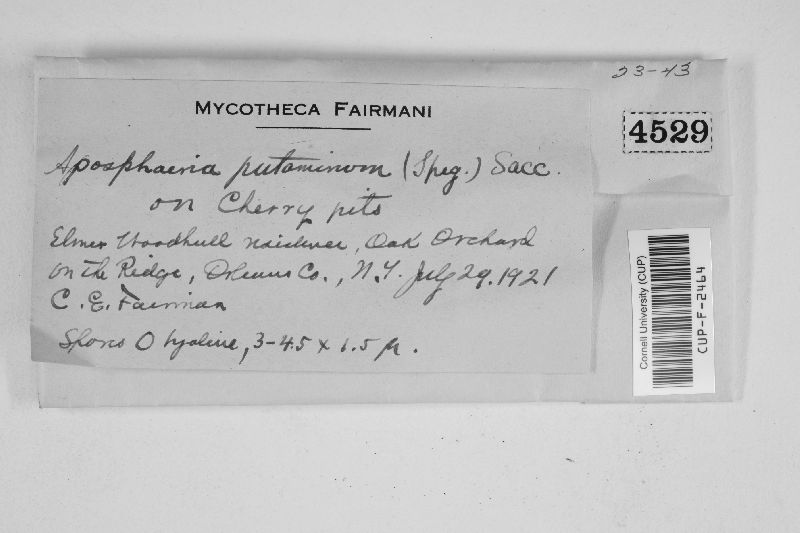 23-43
MYCOTHECA FAIRMANI
4529
Aposphaeria putaminum (Speg.) Sacc.
on Cherry pits
Elmer Woodhull residence, Oak Orchard
on the Ridge, Orleans Co., N.Y. July 29. 1921
C. E. Fairman
Spores O hyaline, 3-4.5 x 1.5 µ.
Cornell University (CUP)
CUP-F-2464